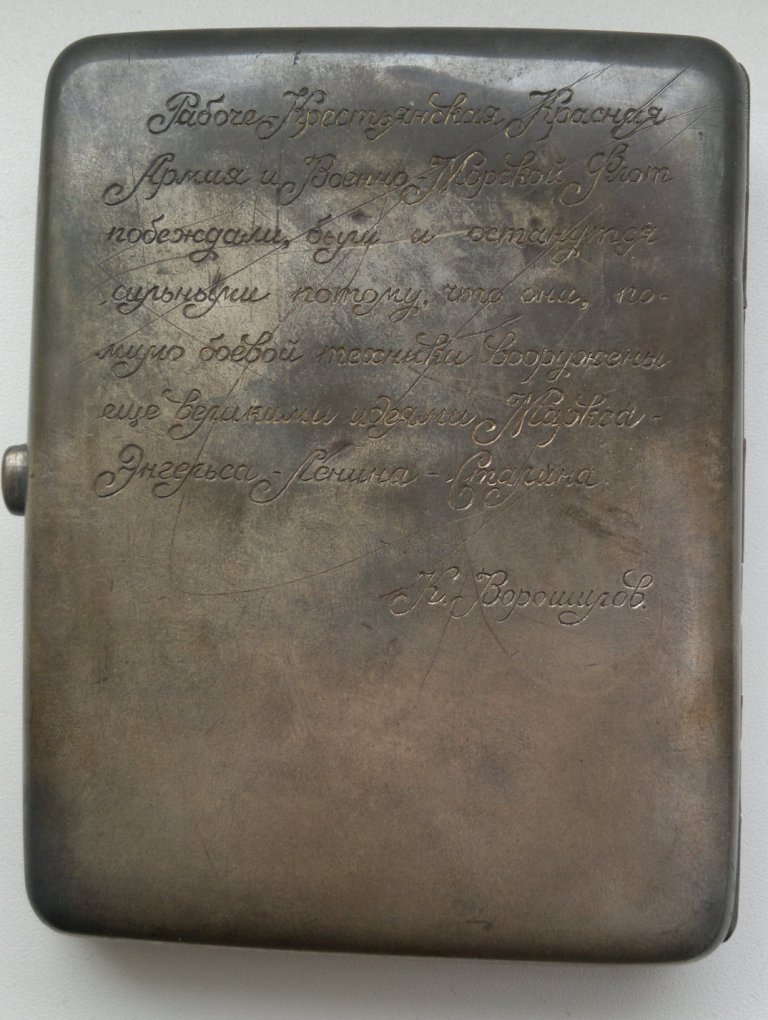 Рабоче-Крестьянская Красная
Армия и Военно-Морской Флот
побеждали, были и останутся
сильными потому, что они, по-
мимо боевой техники вооружены
еще великими идеями Маркса-
Энгельса - Ленина - Сталина.
К. Ворошилов.